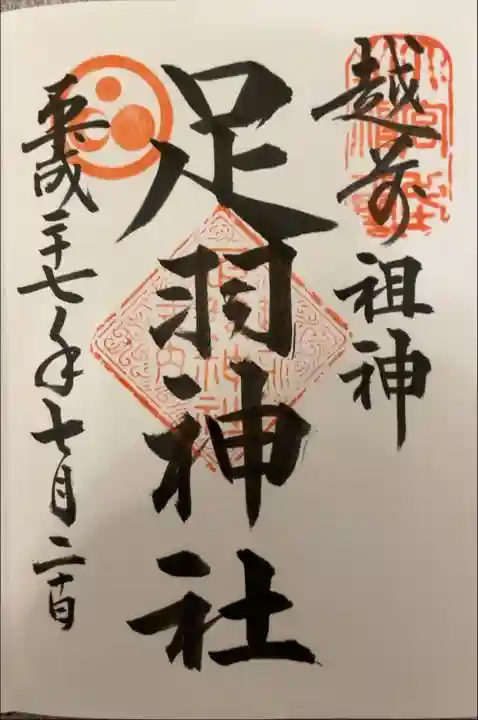 越前祖神
足羽神社
平成二十七年七月二十日